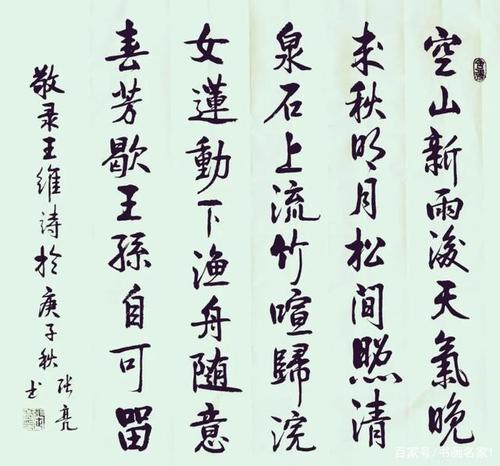 空山新雨後天氣晚
来秋明月松间照清
泉石上流竹喧歸浣
女蓮動下渔舟随意
春芳歇王孫自可留
敬录王维诗於庚子秋
张亮
书
百家号/书画名家1